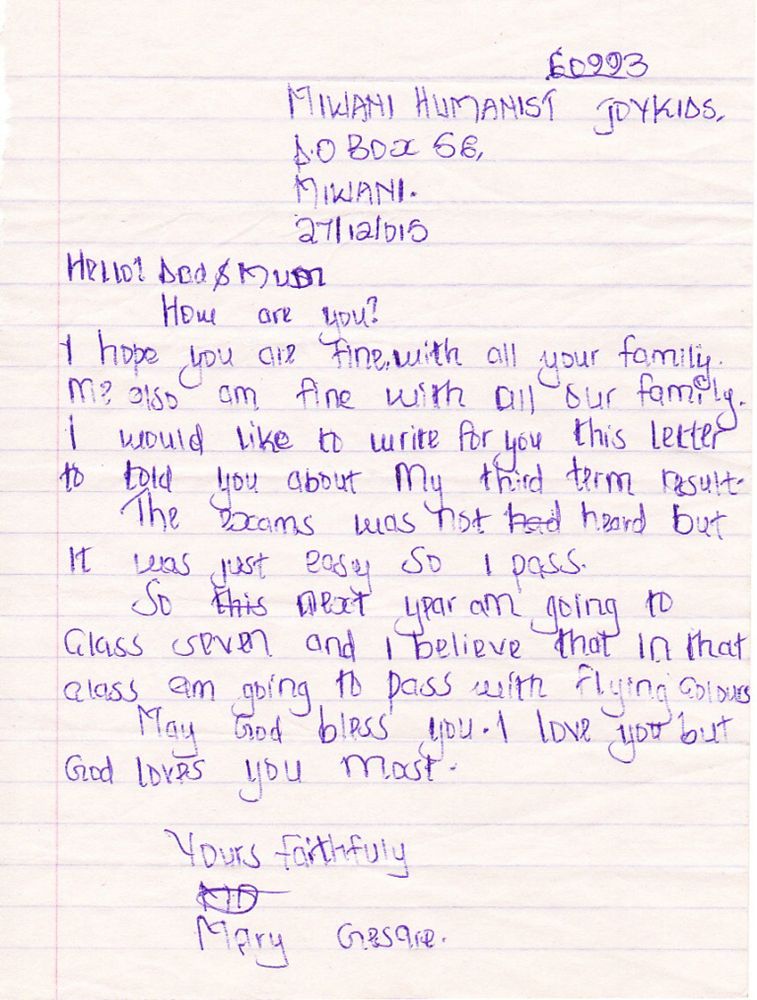 60993
MIWANI HUMANIST JOYKIDS,
P.O BOX 56,
MIWANI.
27/12/015
Hello! Dad & Mum
How are you?
I hope you are fine, with all your family.
Me also am fine with all our family.
I would like to write for you this letter
to told you about My third term result.
The Exams was not had heard but
It was just easy so I pass.
So this next year am going to
Class seven and I believe that in that
class am going to pass with flying colours
May God bless you. I love you but
God loves you most.
Yours faithfuly
Mary Gesare.